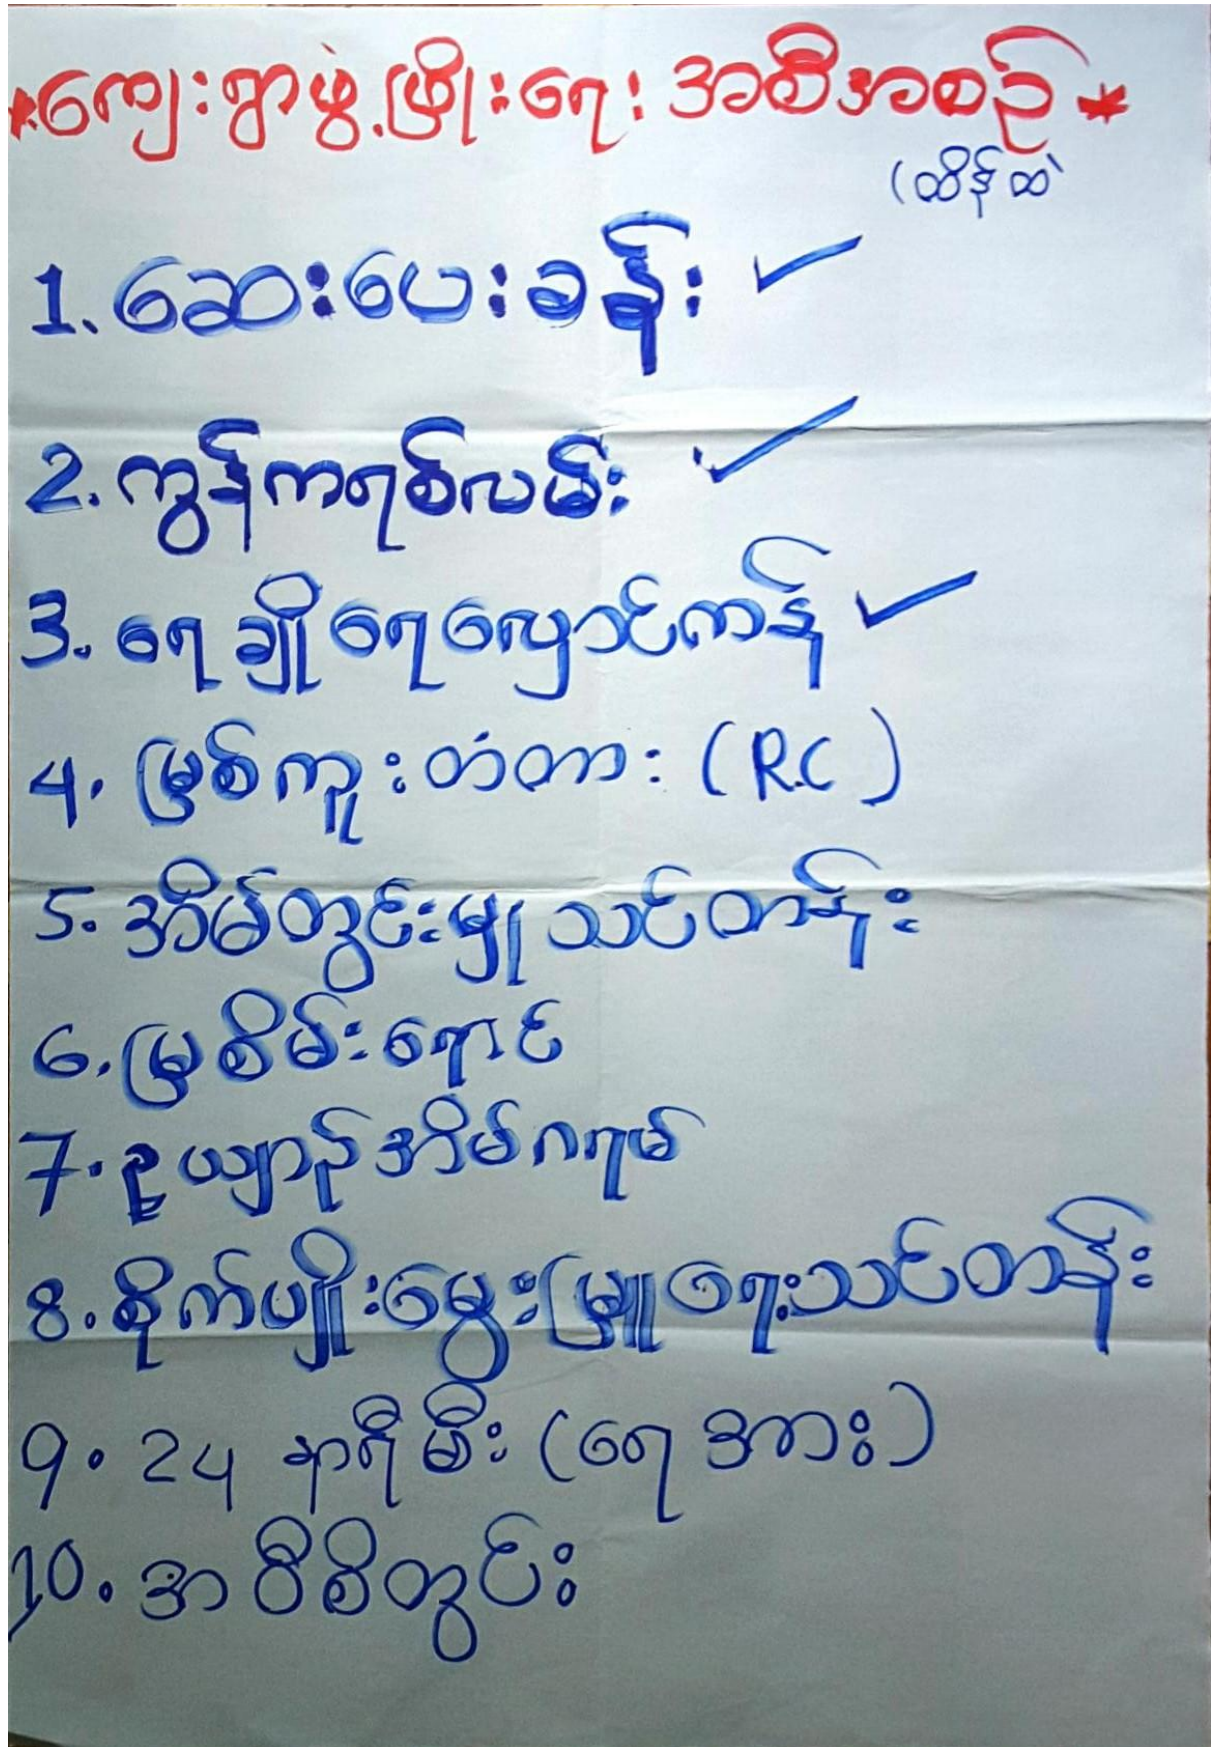 *ကျေးရွာဖွံ့ဖြိုးရေး အစီအစဉ်*
(ထိန်ထဲ
1. ဆေးပေးခန်း ✓
2. ကွန်ကရစ်လမ်း ✓
3. ရေချိုရေလှောင်ကန် ✓
4. မြစ်ကူးတံတား (R.C)
5. အိမ်တွင်းမှု သင်တန်း
6. မြစိမ်းရောင်
7. ဥယျာဉ်အိမ်ဂရမ်
8. စိုက်ပျိုးမွေးမြူရေးသင်တန်း
9. 24 နာရီမီး (ရေအား)
10. အဝီစိတွင်း